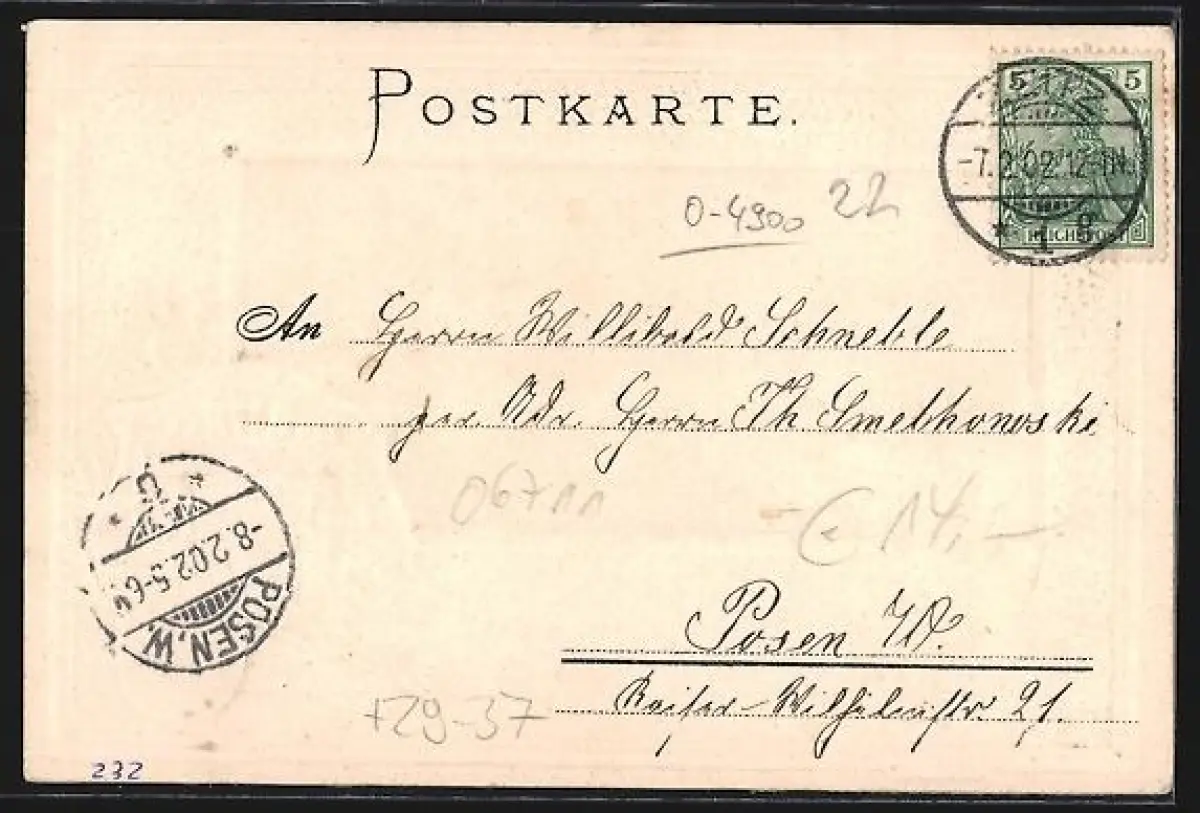 POSTKARTE.
5 5
ZEITZ
-7.2.02.12-1N.
* 1 g
REICHSPOST
0-4900 22
An Herrn Willibald Schneble
per Adr. Herrn Th Smethonoski
06711
- € 14,-
Ü
-8.2.02.5-6N
POSEN.W.
Posen W.
Kaiser-Wilhelmstr 21.
+29-37
232